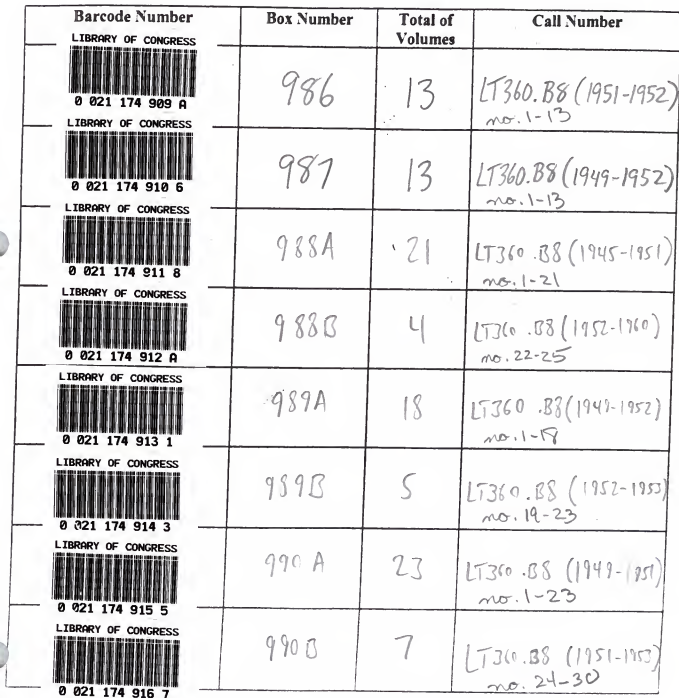 Barcode Number Box Number Total of Volumes Call Number
LIBRARY OF CONGRESS
0 021 174 909 A
986 13 LT360.B8 (1951-1952)
no. 1-13
LIBRARY OF CONGRESS
0 021 174 910 6
987 13 LT360.B8 (1949-1952)
no. 1-13
LIBRARY OF CONGRESS
0 021 174 911 8
988A 21 LT360 .B8 (1945-1951)
no. 1-21
LIBRARY OF CONGRESS
0 021 174 912 A
988B 4 LT360 .B8 (1952-1960)
no. 22-25
LIBRARY OF CONGRESS
0 021 174 913 1
989A 18 LT360 .B8 (1949-1952)
no. 1-18
LIBRARY OF CONGRESS
0 021 174 914 3
989B 5 LT360 .B8 (1952-1953)
no. 19-23
LIBRARY OF CONGRESS
0 021 174 915 5
990 A 23 LT360 .B8 (1949-1951)
no. 1-23
LIBRARY OF CONGRESS
0 021 174 916 7
990 B 7 LT360 .B8 (1951-1953)
no. 24-30